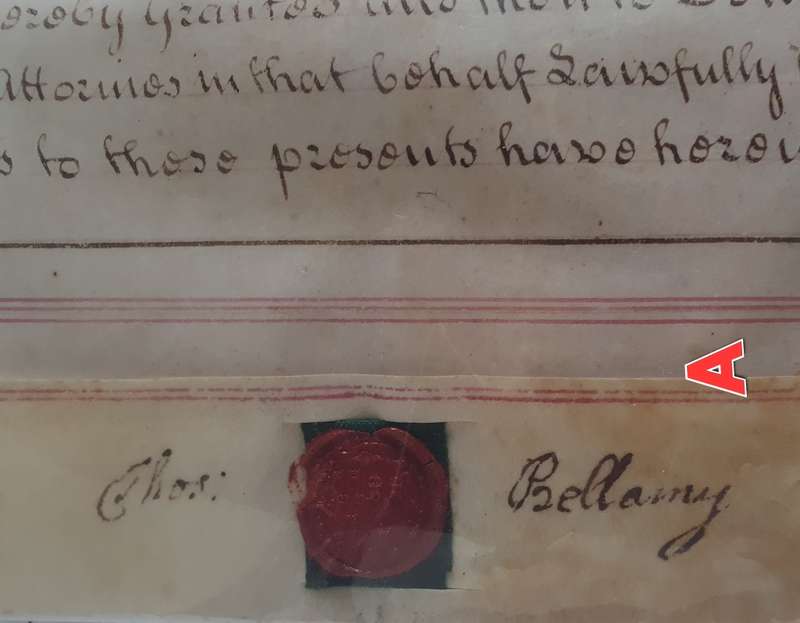 hereby Granted and then to
Attornies in that behalf Lawfully
to these presents have
A
Thos: Bellamy